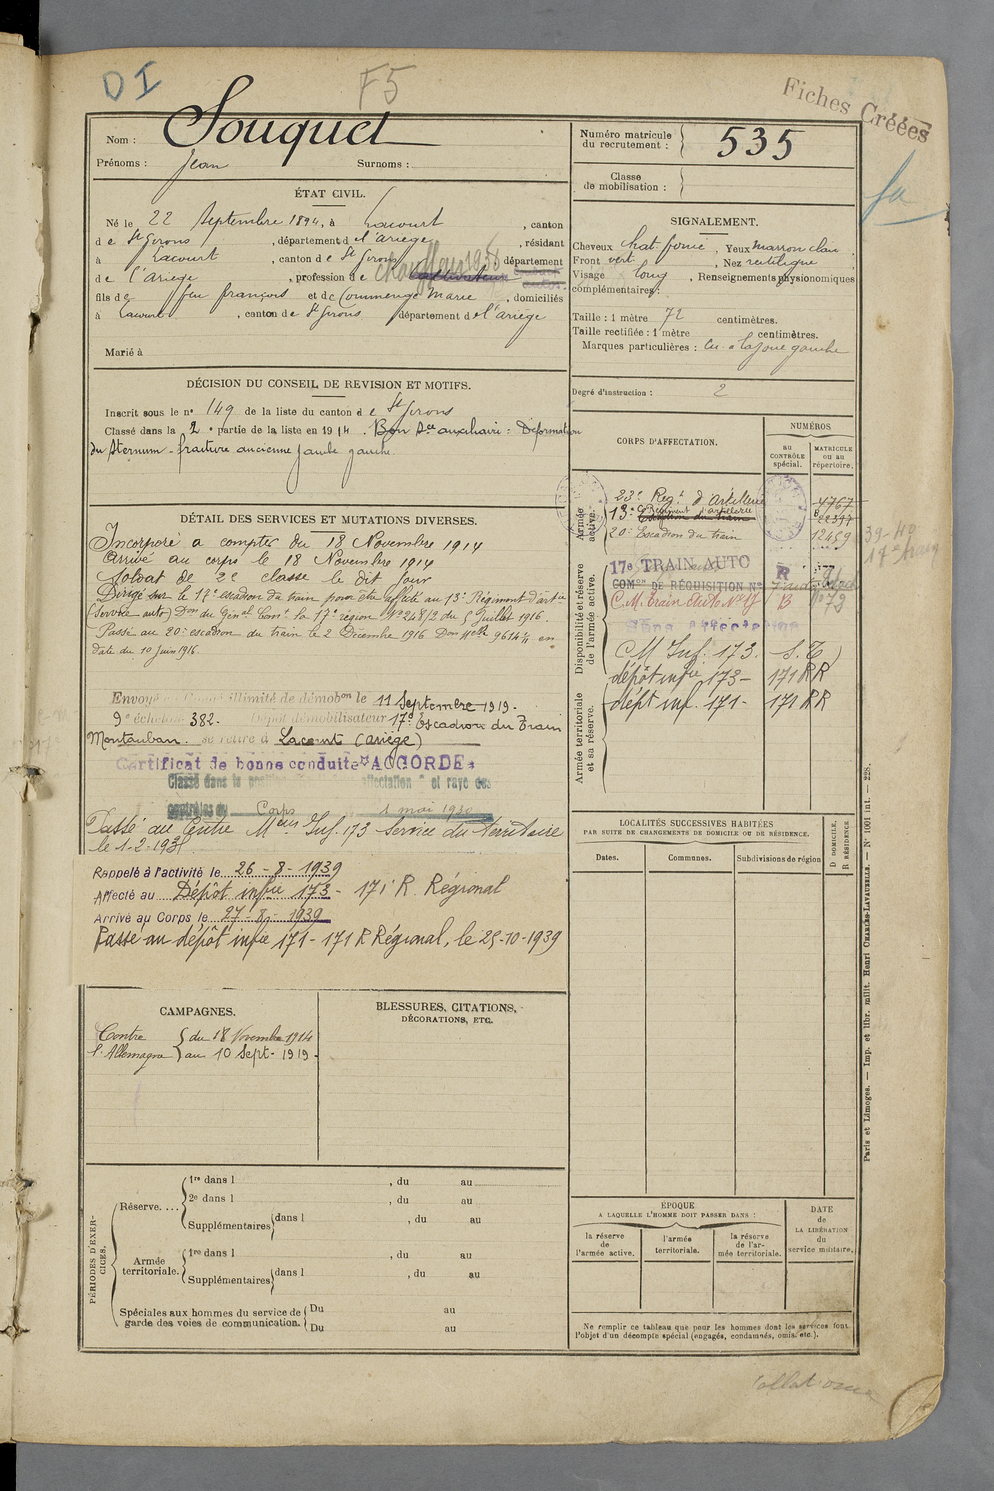 DI
F5
Fiches Créées
Nom : Souquet
Prénoms : Jean Surnoms :
Numéro matricule du recrutement : 535
Classe de mobilisation :
ÉTAT CIVIL.
Né le 22 Septembre 1894, à Lacourt, canton
de St Girons, département de l'ariège, résidant
à Lacourt, canton de St Girons, département
de l'ariège, profession de chauffeur cultivateur
fils de feu françois et de Commenge Marie, domiciliés
à Lacourt, canton de St Girons département de l'ariège
Marié à
SIGNALEMENT.
Cheveux chat foncé, Yeux marron clair
Front vert, Nez rectiligne
Visage long, Renseignements physionomiques
complémentaires :
Taille : 1 mètre 72 centimètres.
Taille rectifiée : 1 mètre centimètres.
Marques particulières : Cic. à la joue gauche
Degré d'instruction : 2
DÉCISION DU CONSEIL DE REVISION ET MOTIFS.
Inscrit sous le n° 149 de la liste du canton de St Girons
Classé dans la 2e partie de la liste en 1914. Bon Sce auxiliaire : Déformation
du Sternum - fracture ancienne jambe gauche.
DÉTAIL DES SERVICES ET MUTATIONS DIVERSES.
Incorporé a compter du 18 Novembre 1914
Arrivé au corps le 18 Novembre 1914
Soldat de 2e classe le dit jour
Dirigé sur le 17e escadron du train pour être affecté au 13e Régiment d'artie
(Service auto) Don du Genal Comt la 17e région No 248/2 du 5 Juillet 1916.
Passé au 20e escadron du train le 2 Décembre 1916 Don Melle 9614¼ en
date du 10 Juin 1916.
Envoyé en Congé illimité de démobon le 11 Septembre 1919.
9e échelon 382. Dépôt démobilisateur 17e Escadron du Train
Montauban. se retire à Lacourt (Ariège)
Certificat de bonne conduite "ACCORDÉ"
Classé dans la position affectation " et rayé des
contrôles du Corps 1 mai 1930
Passé au Centre Mens Inf. 173 Service du Territoire
le 1.2.1931
Rappelé à l'activité le 26-8-1939
Affecté au Dépôt infie 173 - 171e R. Régional
Arrivé au Corps le 27-8-1939
Passé au dépôt infie 171 - 171 R Régional, le 25-10-1939
CORPS D'AFFECTATION.
NUMÉROS
AU CONTRÔLE spécial.
MATRICULE ou au répertoire.
Armée active.
23e Regt d'artillerie 4767
13e Régiment d'artillerie 22347
20e Escadron du train 12459
Disponibilité et réserve de l'armée active.
17e TRAIN AUTO R
COMon DE RÉQUISITION No
C.M. Train Auto No 17 B No 73
Sans affectation
CM Inf. 173. S.T)
dépôt infie 173 - 171 RR
Armée territoriale et sa réserve.
dépt inf. 171 - 171 RR
39-40
LOCALITÉS SUCCESSIVES HABITÉES
PAR SUITE DE CHANGEMENTS DE DOMICILE OU DE RÉSIDENCE.
Dates. Communes. Subdivisions de région
D DOMICILE, R RÉSIDENCE
CAMPAGNES.
Contre l'Allemagne
du 18 Novembre 1914
au 10 Sept. 1919.
BLESSURES, CITATIONS,
DÉCORATIONS, ETC.
PÉRIODES D'EXERCICES.
Réserve....
1re dans l , du au
2e dans l , du au
Supplémentaires dans l , du au
Armée territoriale.
1re dans l , du au
Supplémentaires dans l , du au
Spéciales aux hommes du service de garde des voies de communication.
Du au
Du au
ÉPOQUE
A LAQUELLE L'HOMME DOIT PASSER DANS :
la réserve de l'armée active.
l'armée territoriale.
la réserve de l'armée territoriale.
DATE de LA LIBÉRATION du service militaire.
Ne remplir ce tableau que pour les hommes dont les services font
l'objet d'un décompte spécial (engagés, condamnés, omis, etc.).
Paris et Limoges. — Imp. et libr. milit. Henri CHARLES-LAVAUZELLE. — N° 1001 int. — 228.